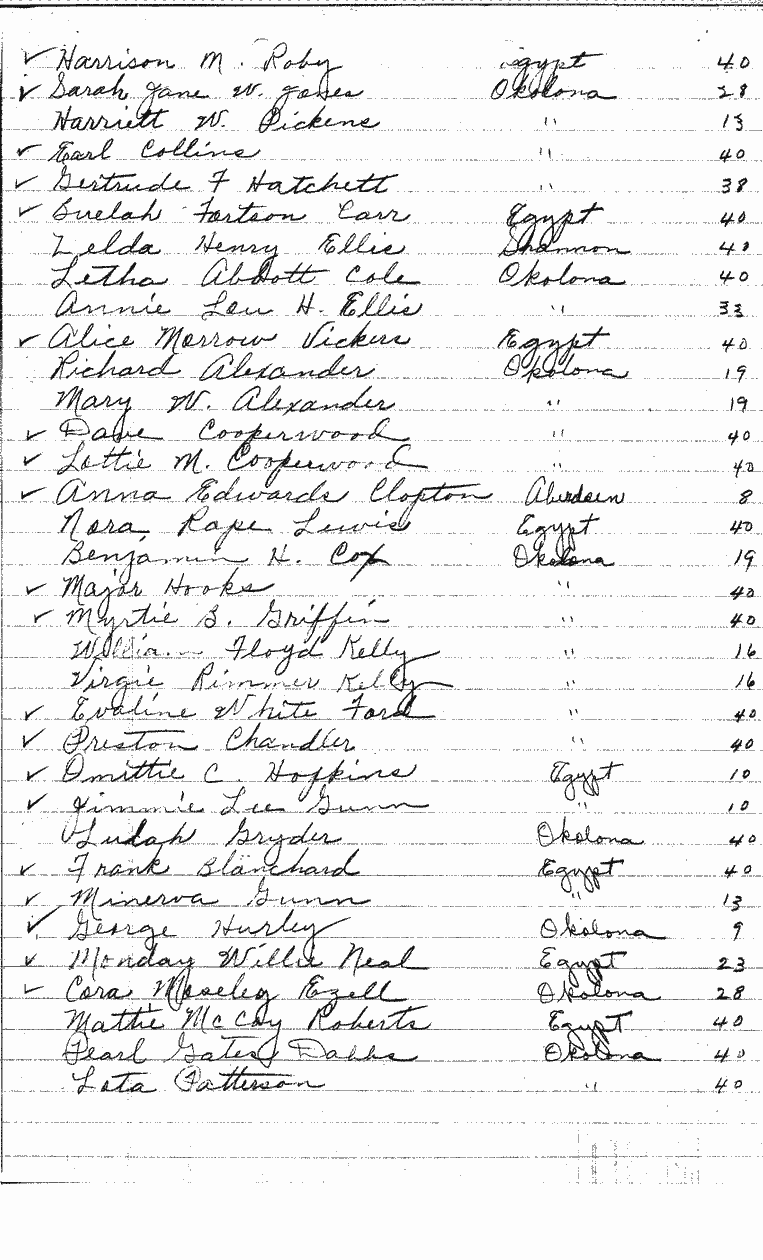 ✓ Harrison M. Roby Egypt 40
✓ Sarah Jane W. Jones Okolona 28
Harriett W. Pickens " 13
✓ Earl Collins " 40
✓ Gertrude F Hatchett " 38
✓ Buelah Fortson Carr Egypt 40
Zelda Henry Ellis Shannon 40
Letha Abbott Cole Okolona 40
Annie Lou H. Ellis " 33
✓ Alice Morrow Vickers Egypt 40
Richard Alexander Okolona 19
Mary W. Alexander " 19
✓ Dave Cooperwood " 40
✓ Lottie M. Cooperwood " 40
✓ Anna Edwards Clopton Aberdeen 8
Nora Pape Lewis Egypt 40
Benjamin H. Cox Okolona 19
✓ Major Hooks " 40
✓ Myrtie B. Griffin " 40
William Floyd Kelly " 16
Virgie Rimmer Kelly " 16
✓ Evaline White Ford " 40
✓ Preston Chandler " 40
✓ Omittie C. Hopkins Egypt 10
✓ Jimmie Lee Gunn " 10
Ludah Gryder Okolona 40
✓ Frank Blanchard Egypt 40
✓ Minerva Gunn " 13
✓ George Hurley Okolona 9
✓ Monday Willie Neal Egypt 23
✓ Cora Moseley Ezell Okolona 28
Mattie McCoy Roberts Egypt 40
Pearl Gates Dabbs Okolona 40
Lota Patterson " 40